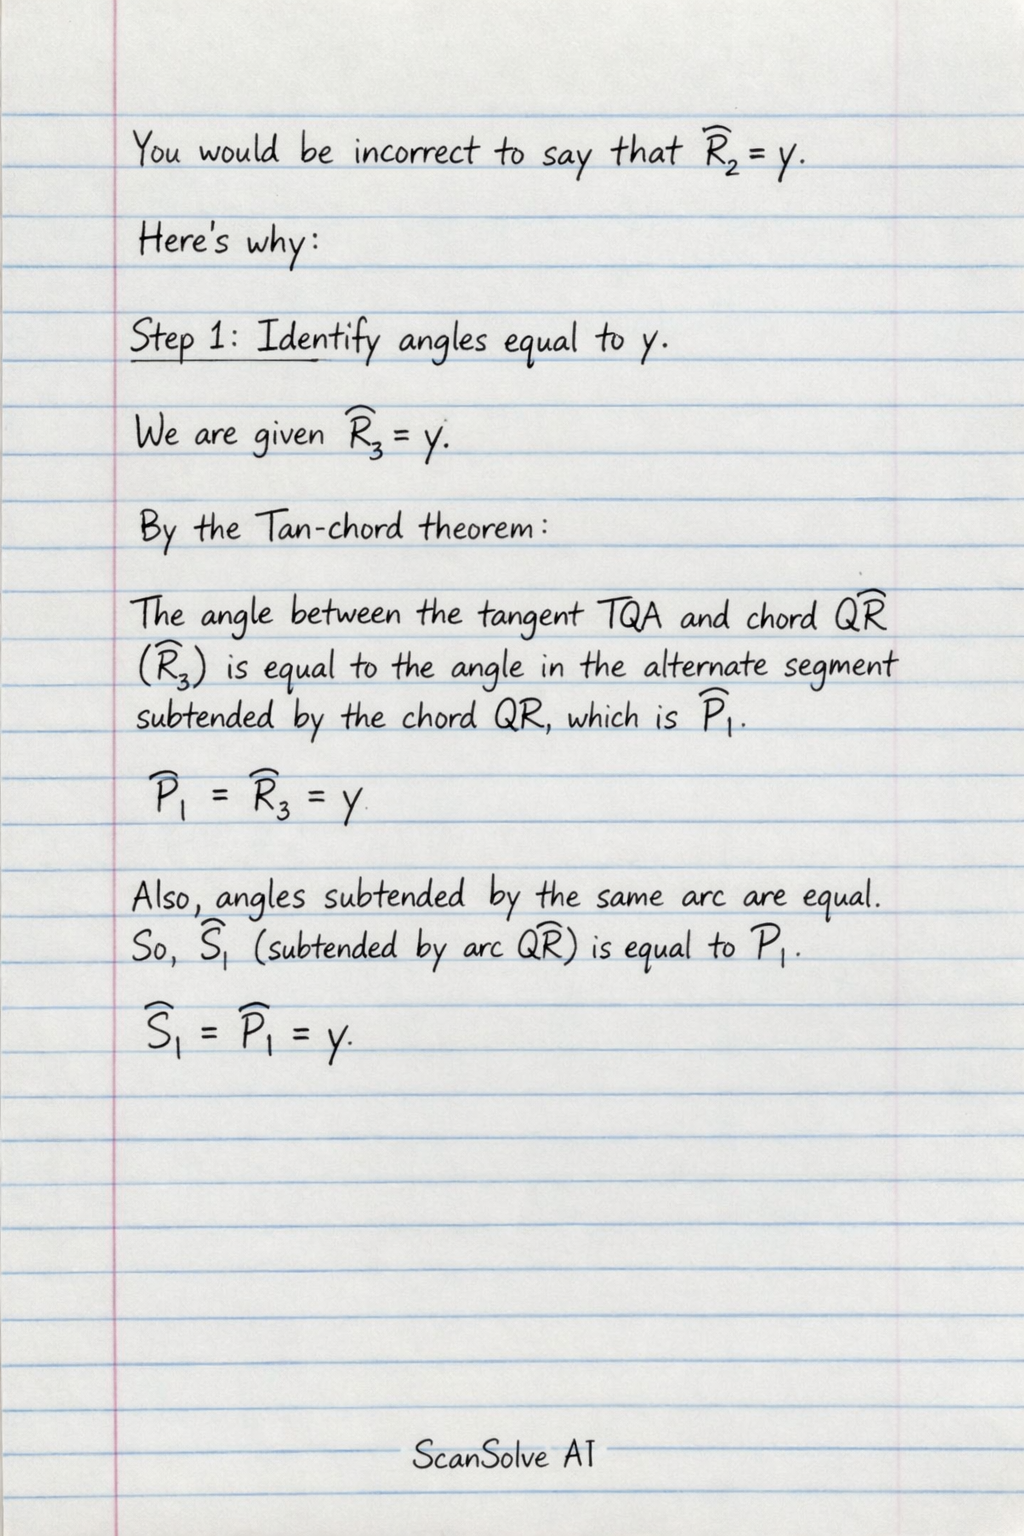 You would be incorrect to say that R̂₂ = y.
Here's why:
Step 1: Identify angles equal to y.
We are given R̂₃ = y.
By the Tan-chord theorem:
The angle between the tangent TQA and chord QR̂
(R̂₃) is equal to the angle in the alternate segment
subtended by the chord QR, which is P̂₁.
P̂₁ = R̂₃ = y
Also, angles subtended by the same arc are equal.
So, Ŝ₁ (subtended by arc QR̂) is equal to P₁.
Ŝ₁ = P̂₁ = y.
ScanSolve AI